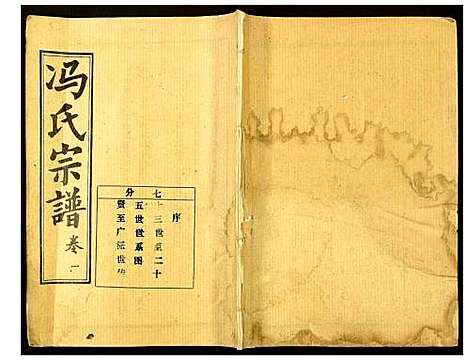 冯氏宗譜
卷一
七分
序
十三世至二十
五世世系图
贤至广派世